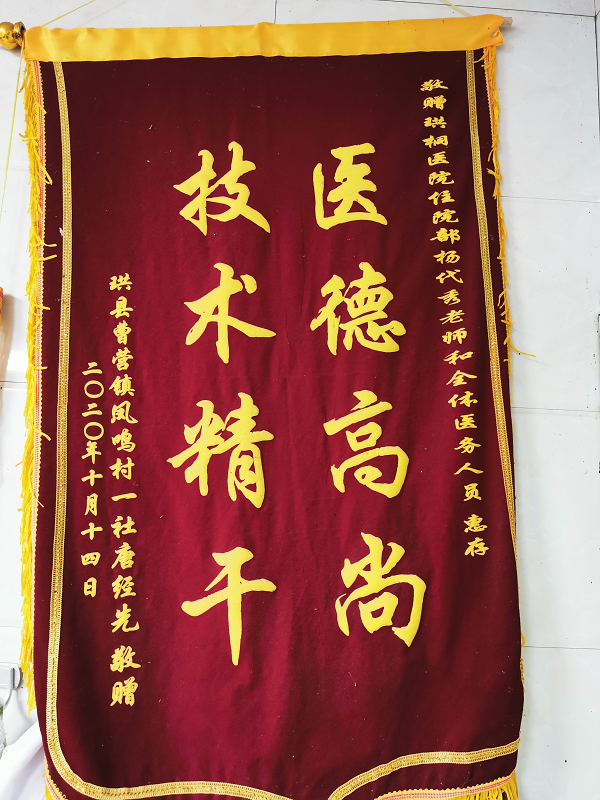 敬赠珙桐医院住院部杨代秀老师和全体医务人员 惠存
医德高尚
技术精干
珙县曹营镇凤鸣村一社唐经先 敬赠
二〇二〇年十月十四日